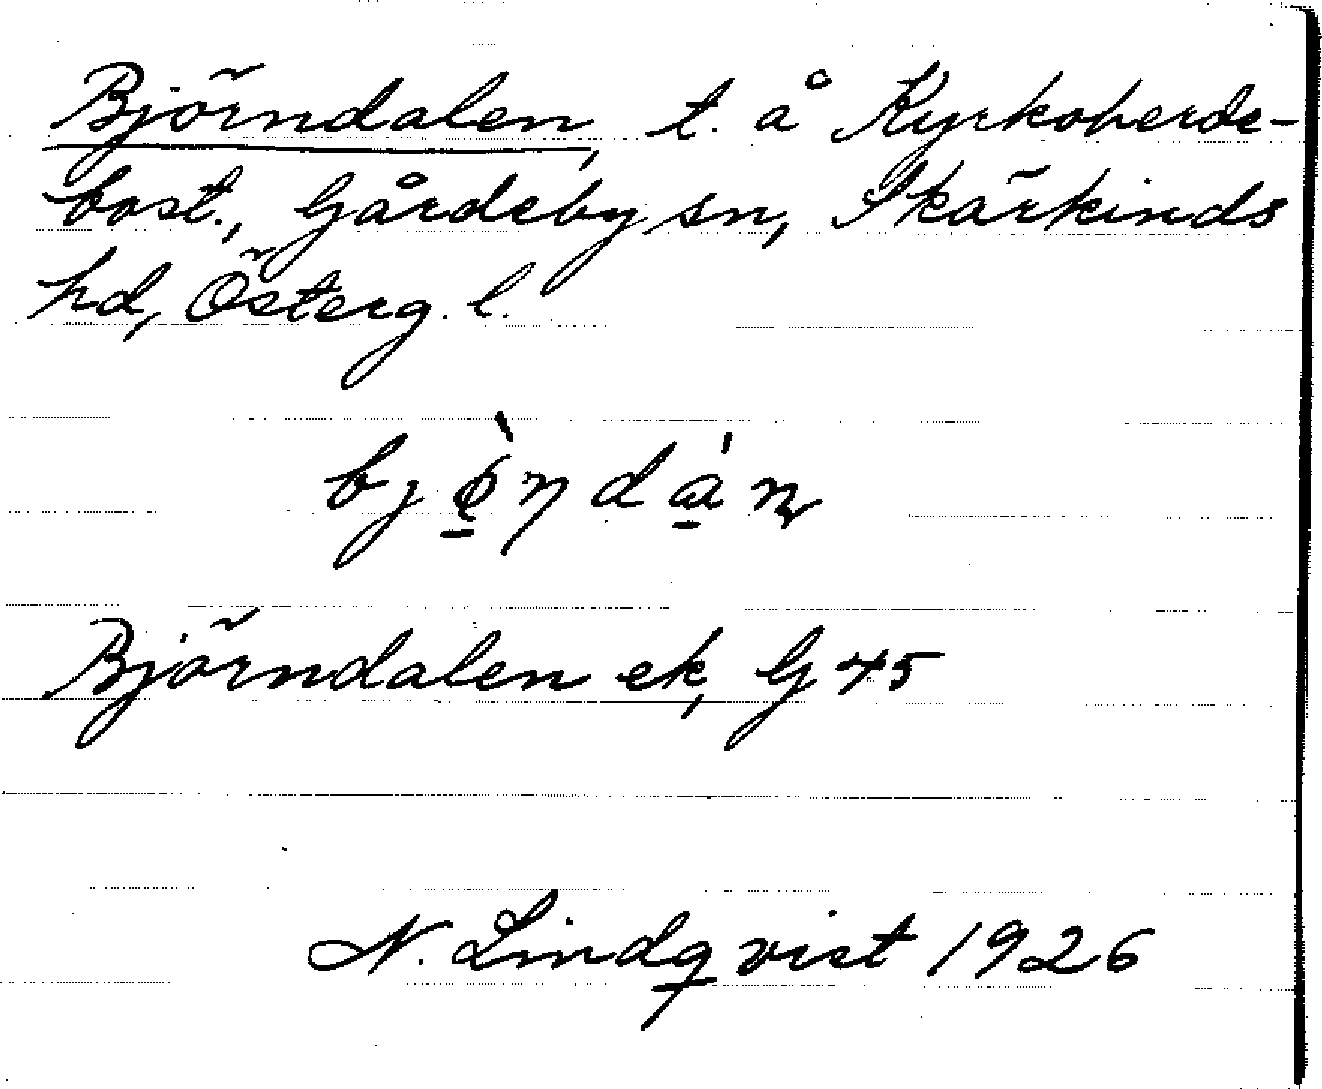 Björndalen, t. å Kyrkoherde-
bost., Gårdeby sn, Skärkinds
hd, Österg. l.
Björndalen ek, G 45
N. Lindqvist 1926